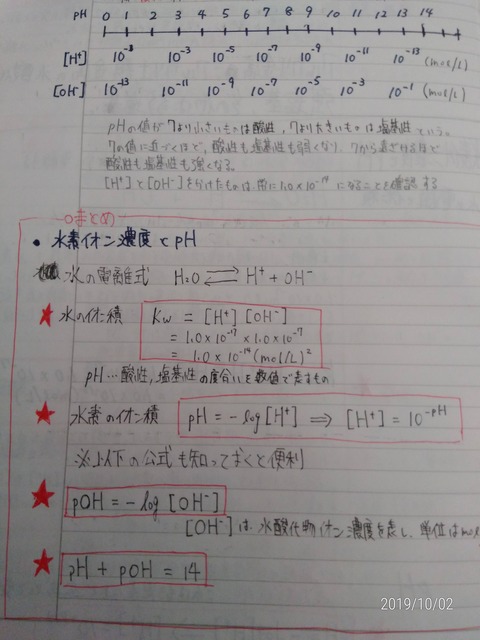 pH 0 1 2 3 4 5 6 7 8 9 10 11 12 13 14
[H⁺] 10⁻³ 10⁻⁵ 10⁻⁷ 10⁻⁹ 10⁻¹¹ 10⁻¹³ (mol/L)
[OH⁻] 10⁻¹³ 10⁻¹¹ 10⁻⁹ 10⁻⁷ 10⁻⁵ 10⁻³ 10⁻¹ (mol/L)
pHの値が7より小さいものは酸性, 7より大きいものは塩基性という。
7の値に近づくほど, 酸性も塩基性も弱くなり, 7から遠ざかるほど
酸性も塩基性も強くなる。
[H⁺]と[OH⁻]をかけたものは、常に1.0×10⁻¹⁴になることを確認する
○まとめ
• 水素イオン濃度とpH
水の電離式 H₂O ⇄ H⁺ + OH⁻
★ 水のイオン積 Kw = [H⁺][OH⁻]
= 1.0×10⁻⁷ × 1.0×10⁻⁷
= 1.0×10⁻¹⁴(mol/L)²
pH…酸性, 塩基性の度合いを数値で表すもの
★ 水素のイオン積 pH = -log[H⁺] ⟹ [H⁺] = 10⁻ᵖᴴ
※以下の公式も知っておくと便利
★ pOH = -log[OH⁻]
[OH⁻]は、水酸化物イオン濃度を表し、単位はmol
★ pH + pOH = 14
2019/10/02